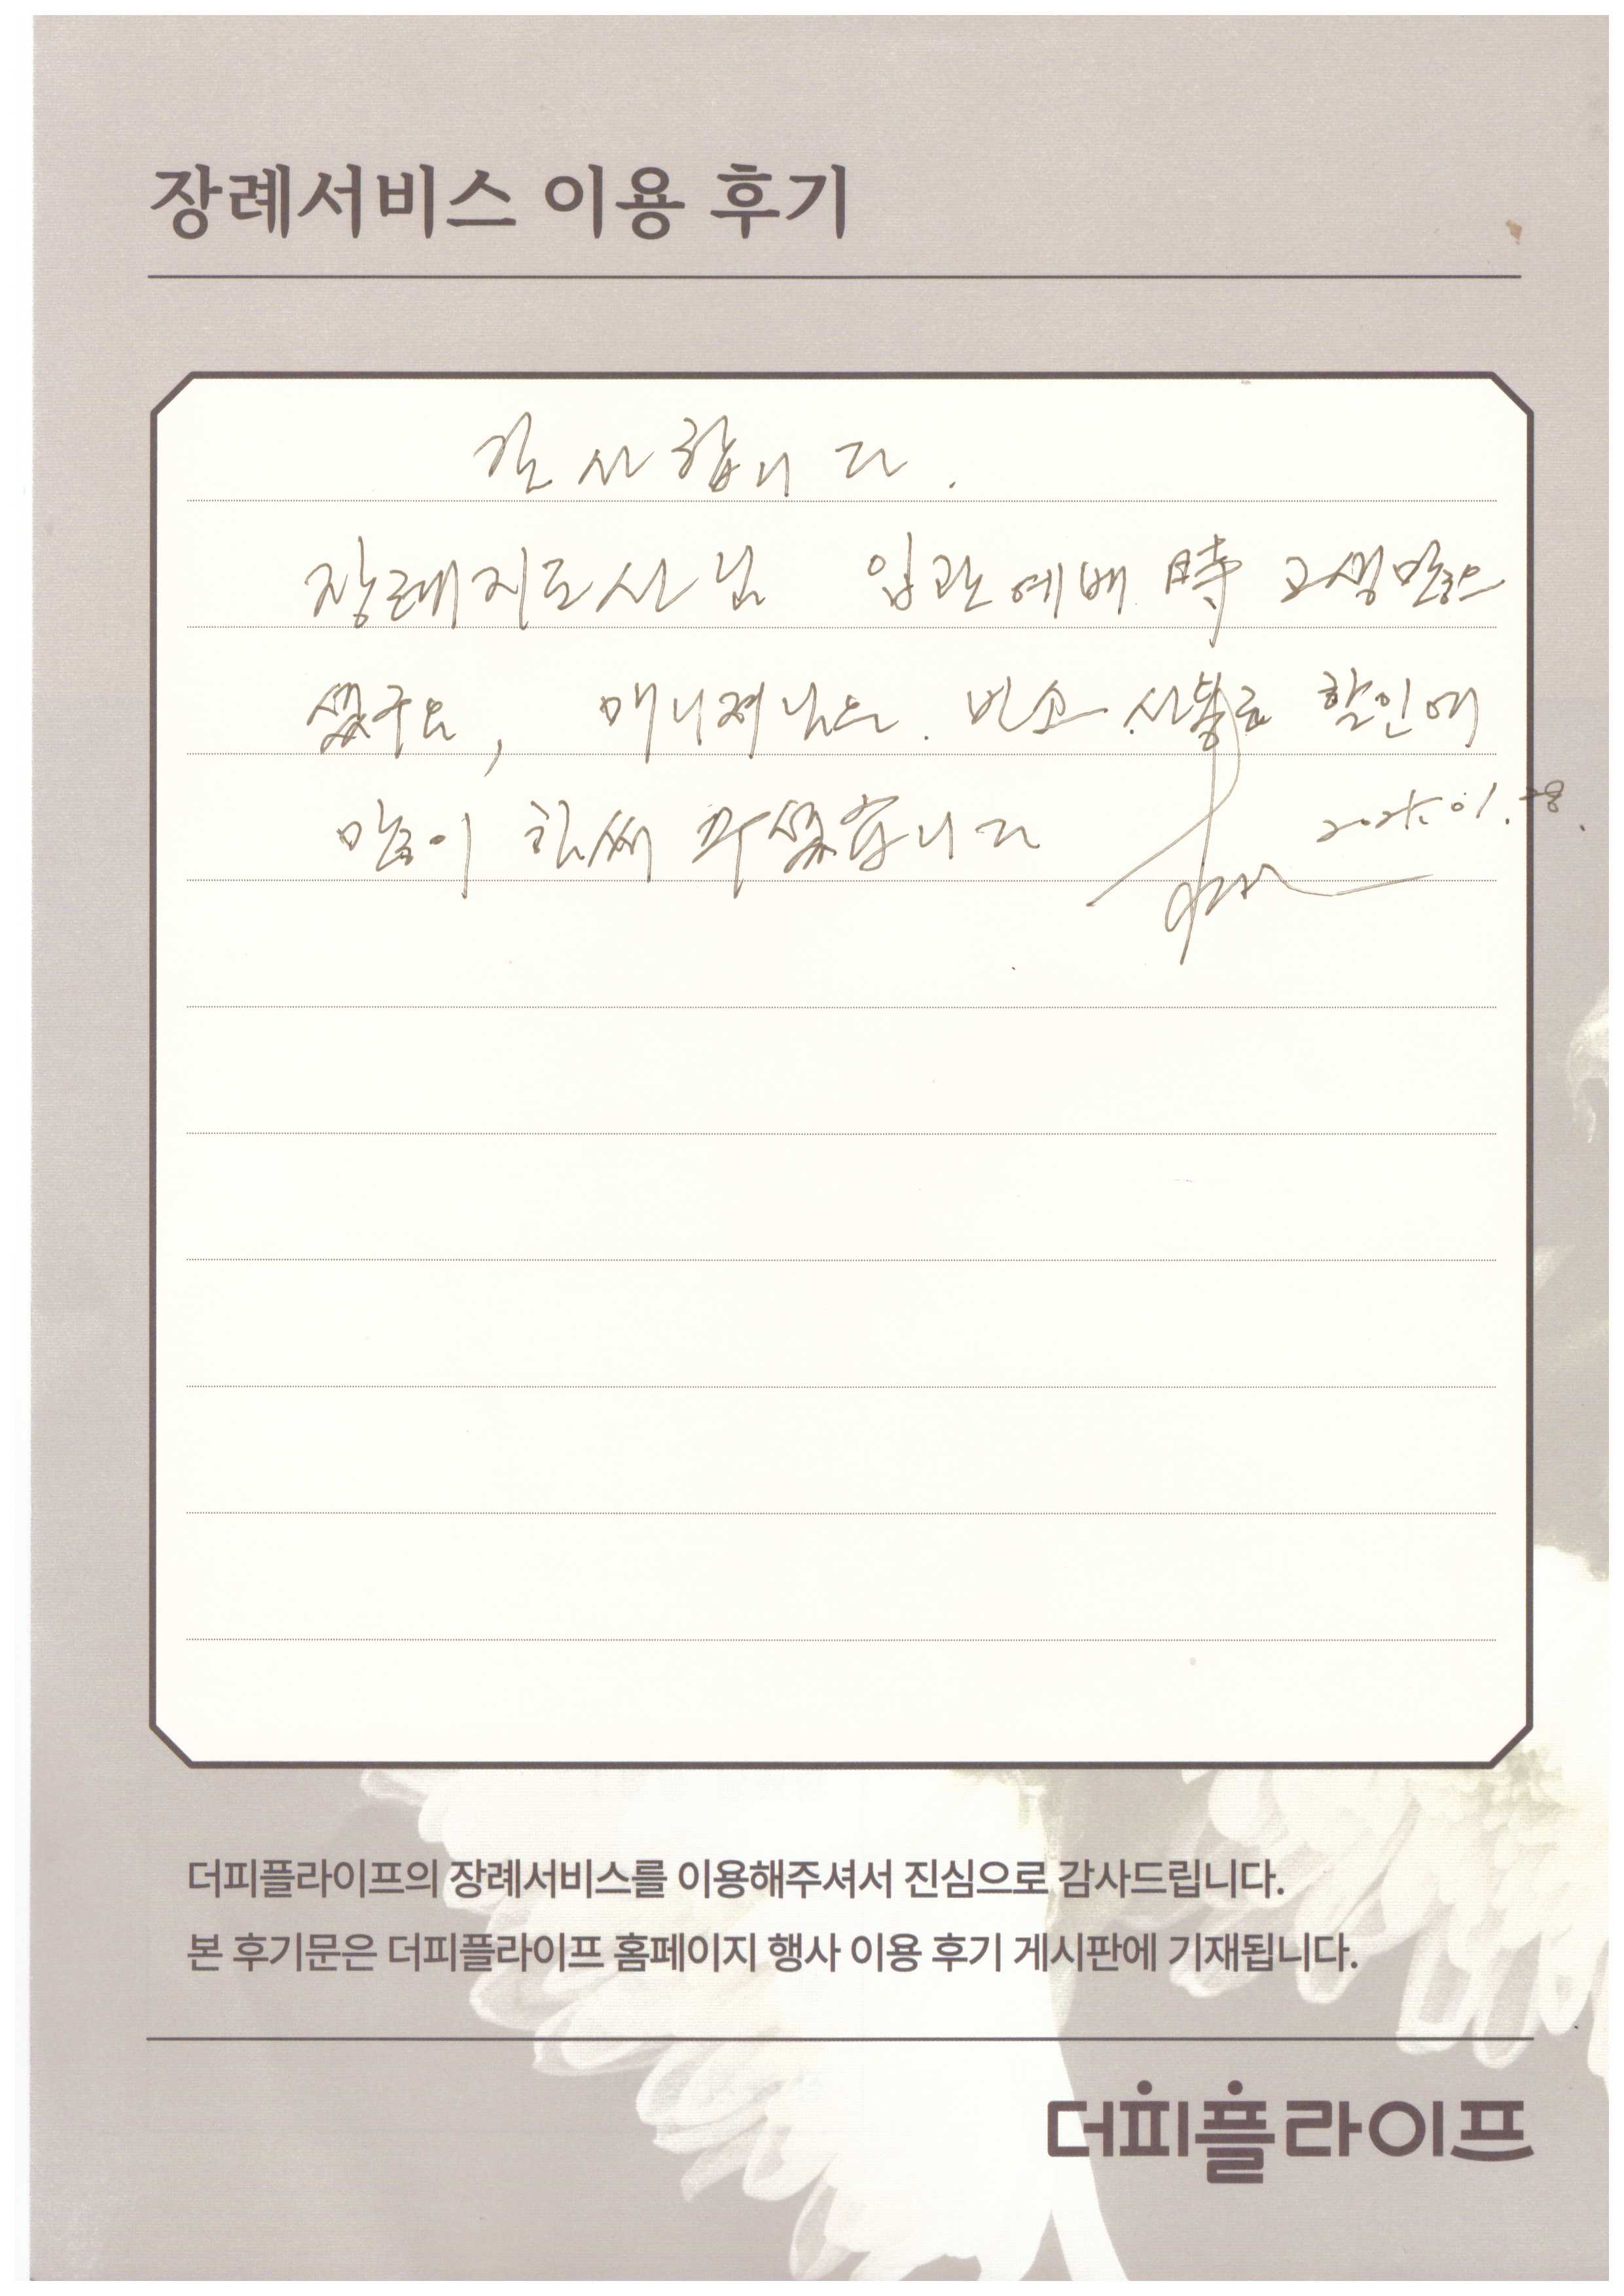 장례서비스 이용 후기
감사합니다.
장례지도사님 입관예배 時 고생많으
셨구요, 매니져님은. 빈소 사용료 할인에
많이 힘써 주셨습니다 2025.01.28.
더피플라이프의 장례서비스를 이용해주셔서 진심으로 감사드립니다.
본 후기문은 더피플라이프 홈페이지 행사 이용 후기 게시판에 기재됩니다.
더피플라이프